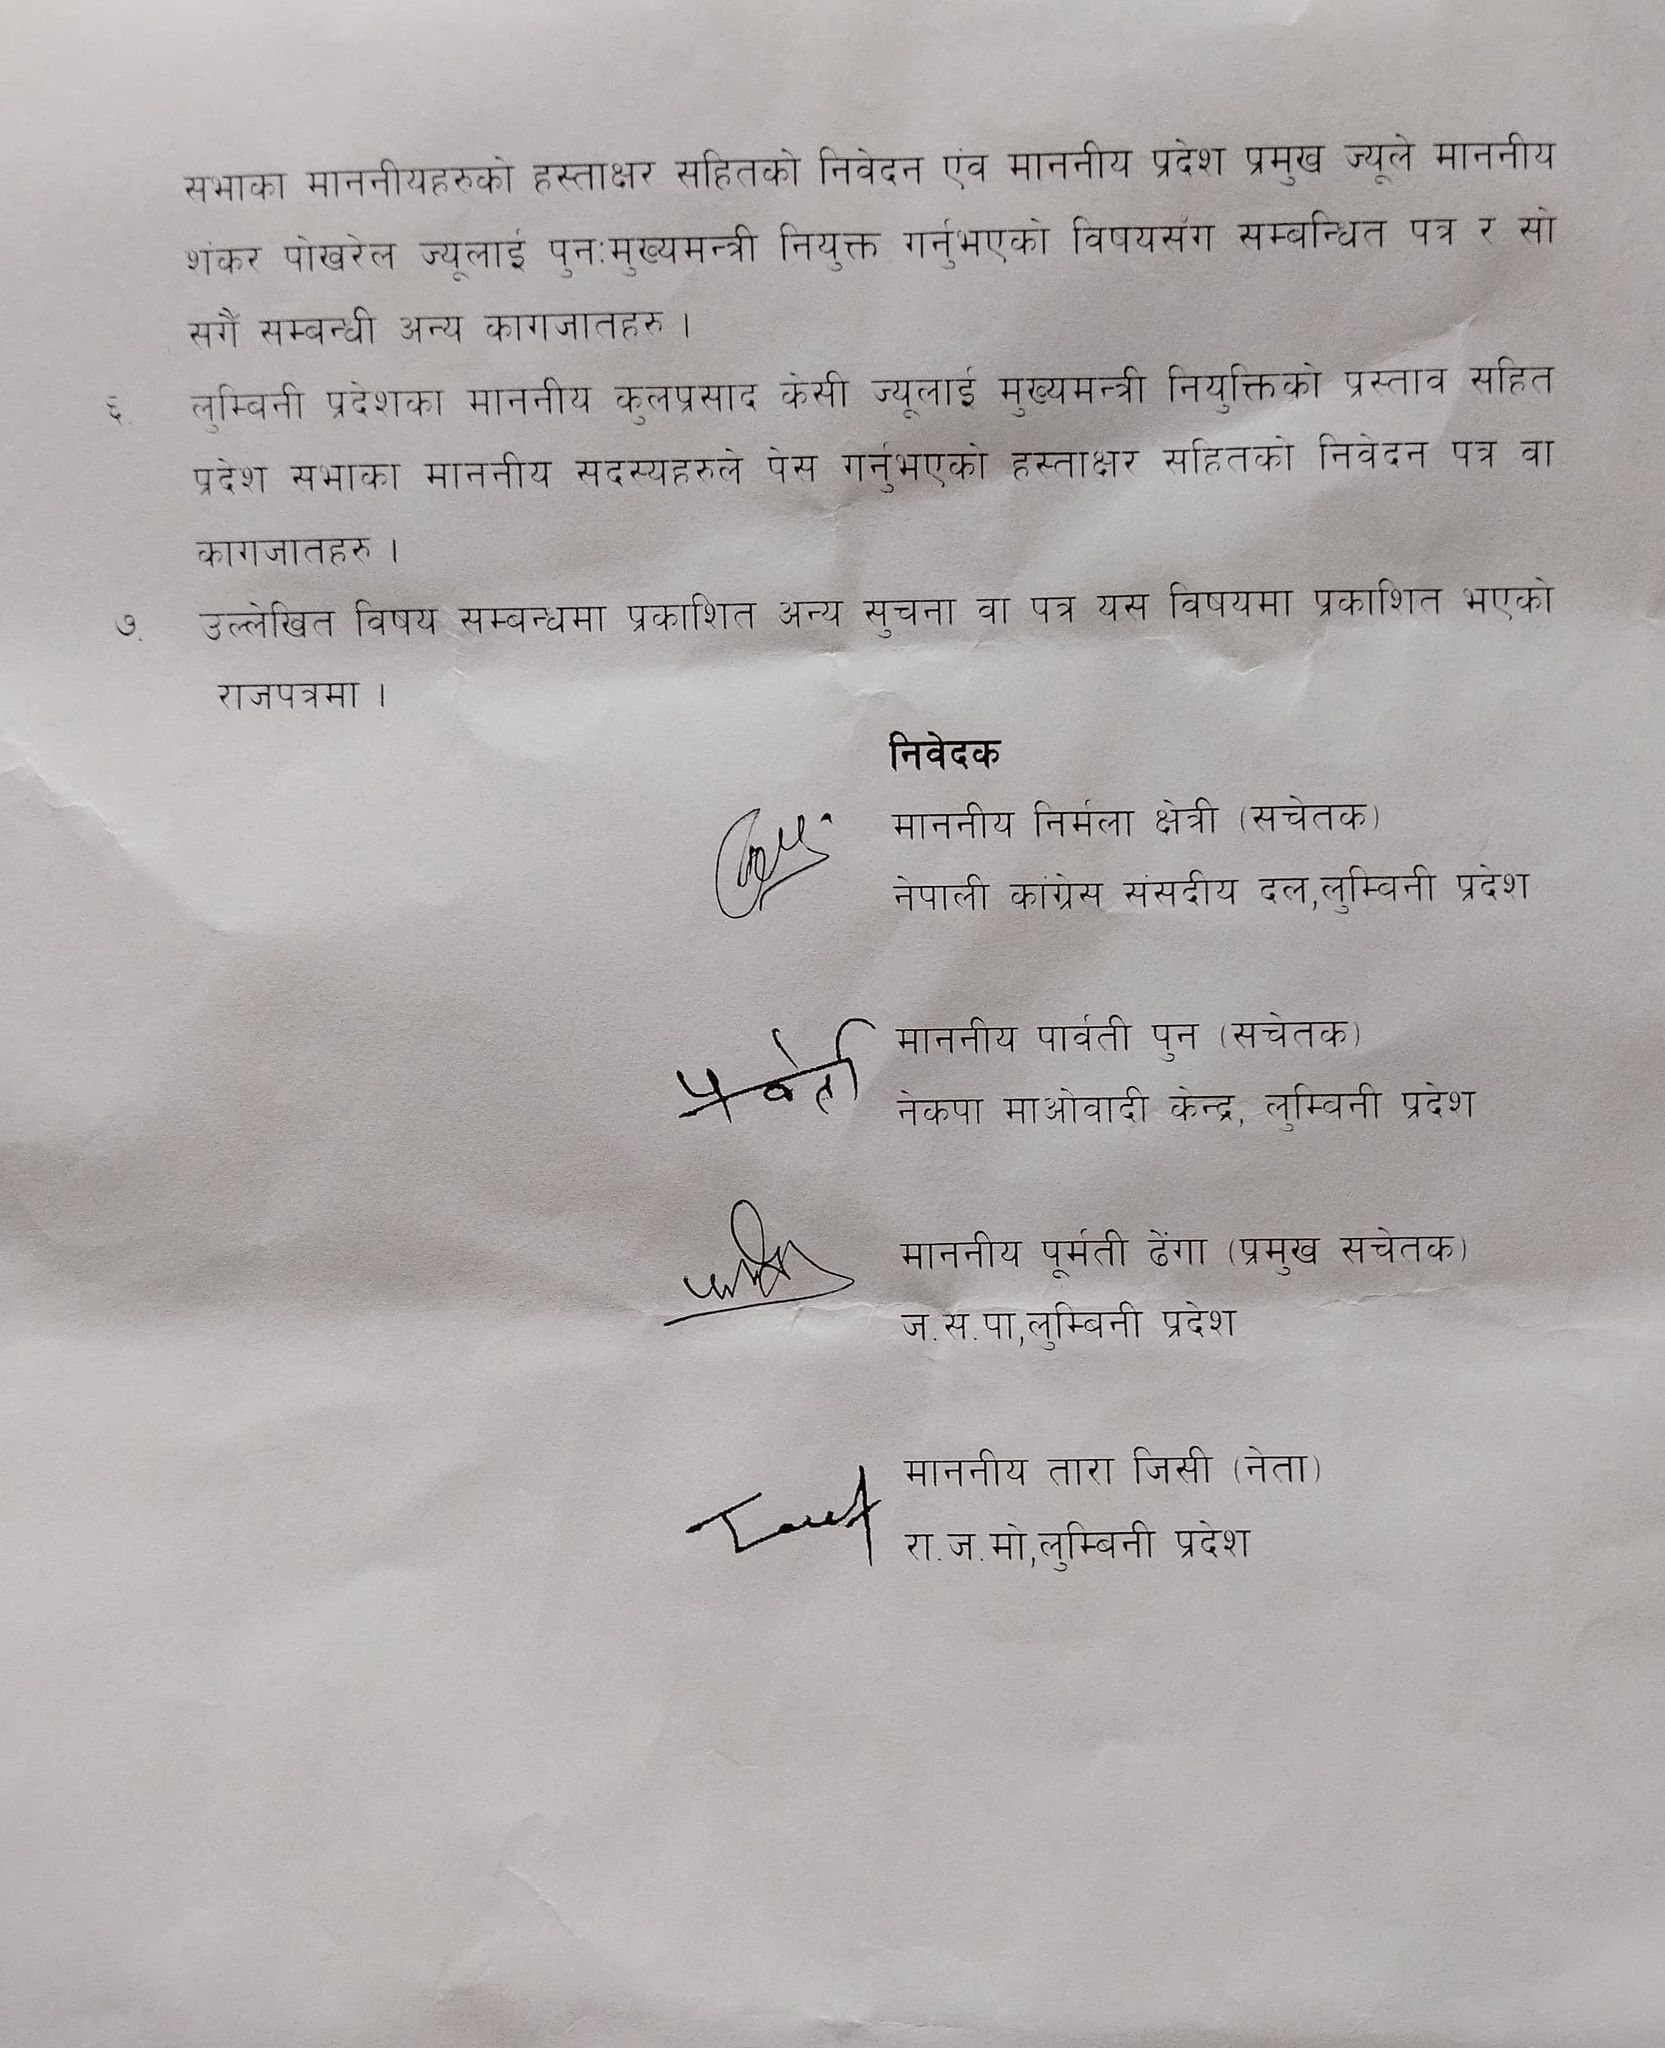 सभाका माननीयहरुको हस्ताक्षर सहितको निवेदन एंव माननीय प्रदेश प्रमुख ज्यूले माननीय
शंकर पोखरेल ज्यूलाई पुन:मुख्यमन्त्री नियुक्त गर्नुभएको विषयसँग सम्बन्धित पत्र र सो
सगैँ सम्बन्धी अन्य कागजातहरु ।
६. लुम्बिनी प्रदेशका माननीय कुलप्रसाद केसी ज्यूलाई मुख्यमन्त्री नियुक्तिको प्रस्ताव सहित
प्रदेश सभाका माननीय सदस्यहरुले पेस गर्नुभएको हस्ताक्षर सहितको निवेदन पत्र वा
कागजातहरु ।
७. उल्लेखित विषय सम्बन्धमा प्रकाशित अन्य सुचना वा पत्र यस विषयमा प्रकाशित भएको
राजपत्रमा ।
निवेदक
माननीय निर्मला क्षेत्री (सचेतक)
नेपाली कांग्रेस संसदीय दल,लुम्विनी प्रदेश
माननीय पार्वती पुन (सचेतक)
नेकपा माओवादी केन्द्र, लुम्विनी प्रदेश
माननीय पूर्मती ढेंगा (प्रमुख सचेतक)
ज.स.पा,लुम्बिनी प्रदेश
माननीय तारा जिसी (नेता)
रा.ज.मो,लुम्बिनी प्रदेश